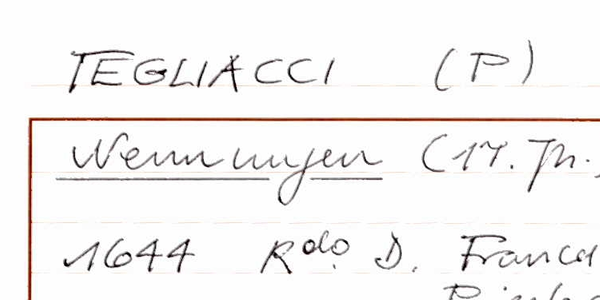 TEGLIACCI (P)
Nennungen (17. Jh.
1644 R.do D. Francd